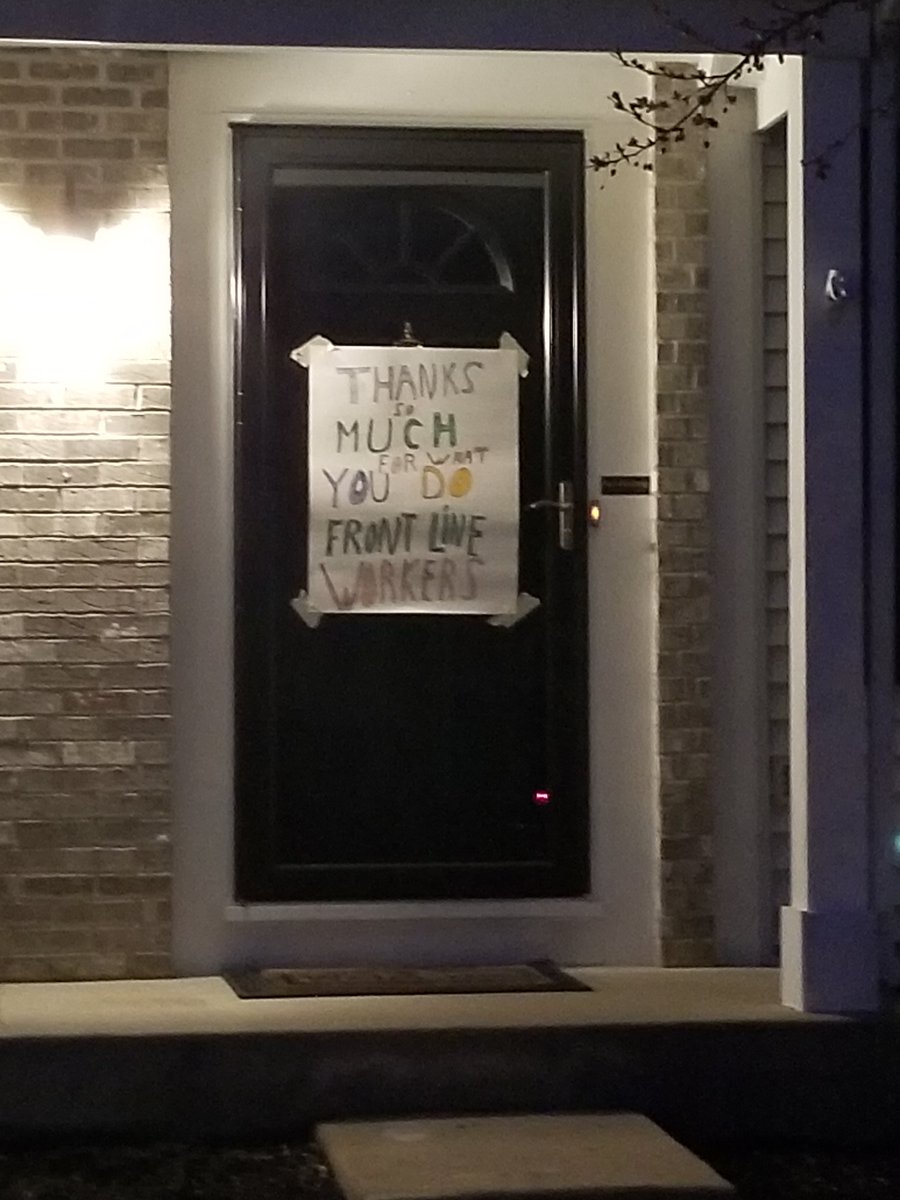 THANKS
SO
MUCH
FOR WHAT
YOU DO
FRONT LINE
WORKERS